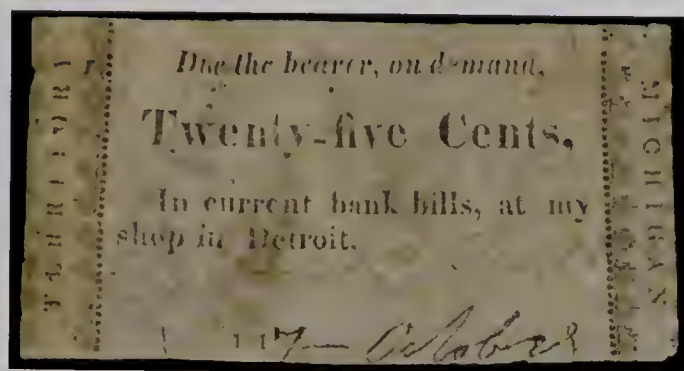 TERRITORY
Due the bearer, on demand,
Twenty-five Cents,
In current bank bills, at my
shop in Detroit.
October
MICHIGAN